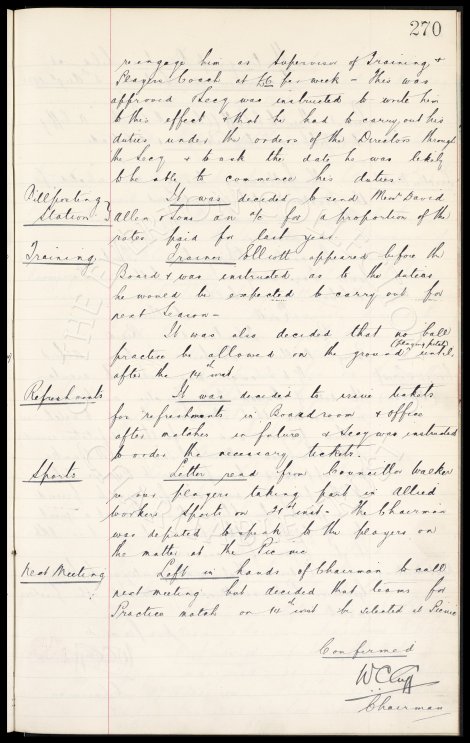 270
re engage him as Supervisor of Training &
Players Coach at £6 per week – This was
approved & Secy was instructed to write him
to this effect & that he had to carry out his
duties under the orders of the Directors through
the Secy & to ask the date he was likely
to be able to commence his duties.
Billposting Station } It was decided to send Messrs David
Allen & Sons an a/c for a proportion of the
rates paid for last year.
Training Trainer Elliott appeared before the
Board & was instructed as to the duties
he would be expected to carry out for
next Season –
It was also decided that no ball
practice be allowed on the ground (playing pitch) until
after the 14th inst.
Refreshments It was decided to issue tickets
for refreshments in Boardroom & Office
after matches in future & Secy was instructed
to order the necessary tickets.
Sports Letter read from Councillor Walker
re our players taking part in Allied
workers Sports on 21st inst – The Chairman
was deputed to speak to the players on
the matter at the Pic nic
Next Meeting Left in hands of Chairman to call
next meeting but decided that teams for
Practice match on 14th inst be selected at Picnic
Confirmed
W C Cuff
Chairman